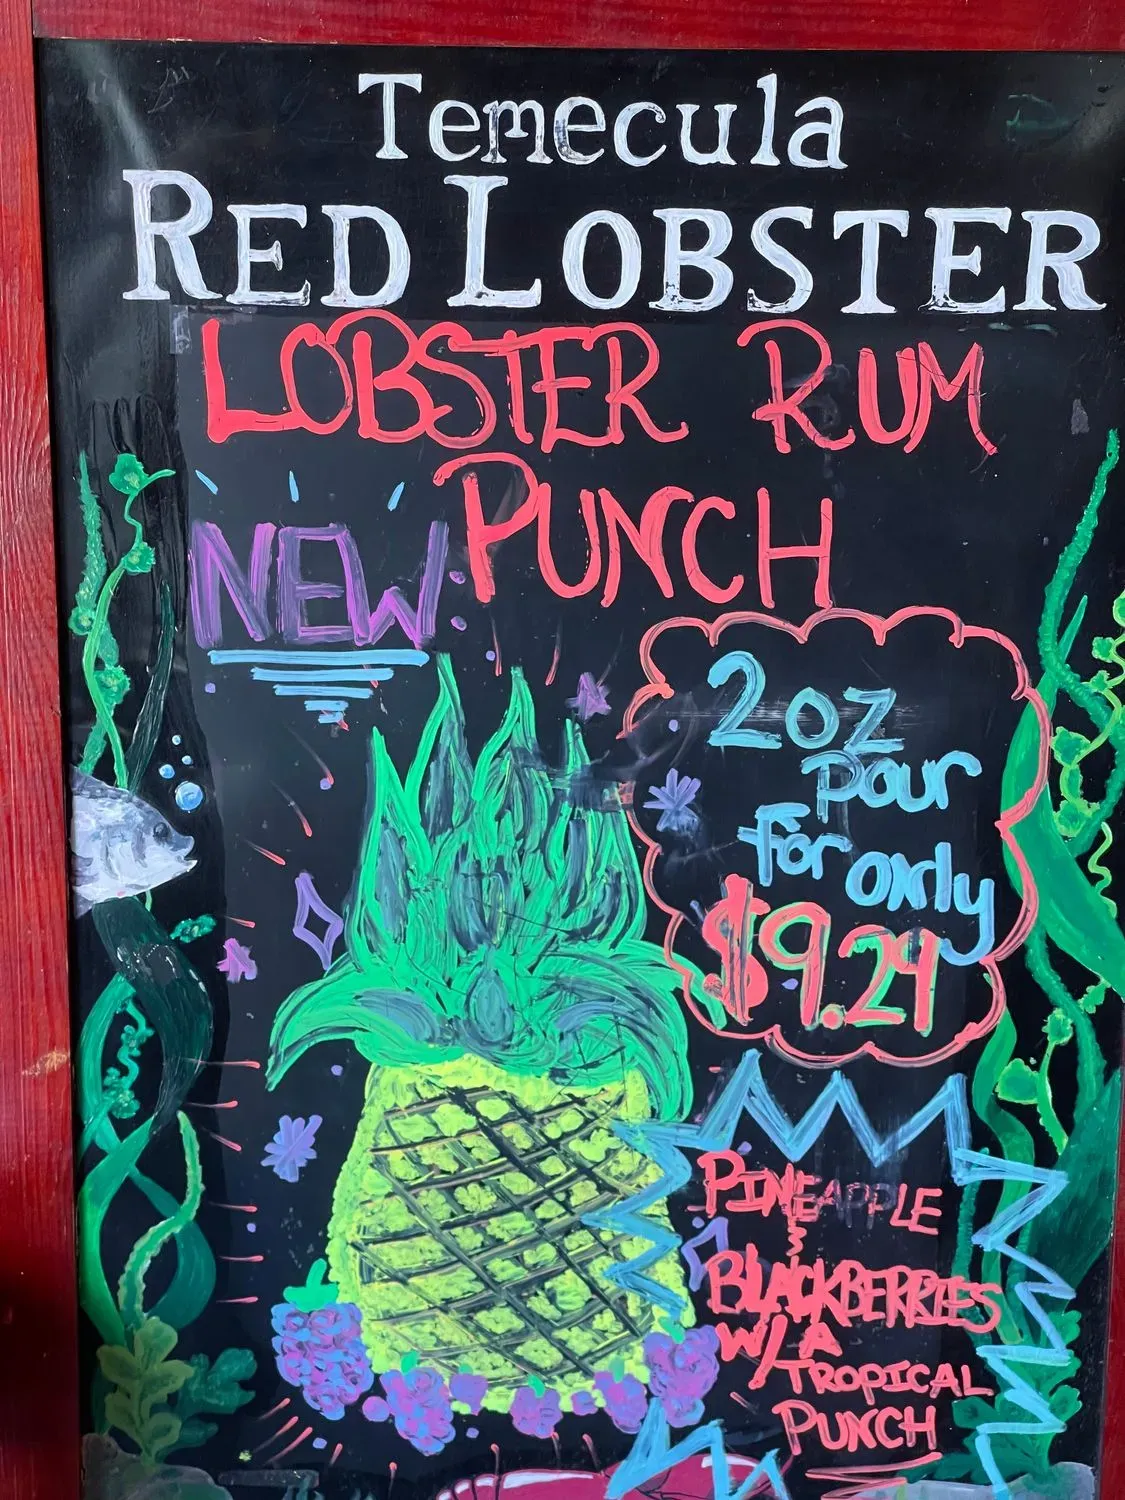 Temecula
RED LOBSTER
LOBSTER RUM
PUNCH
NEW
2oz
Pour
for only
$9.29
PINEAPPLE
&
BLACKBERRIES
W/ A
TROPICAL
PUNCH